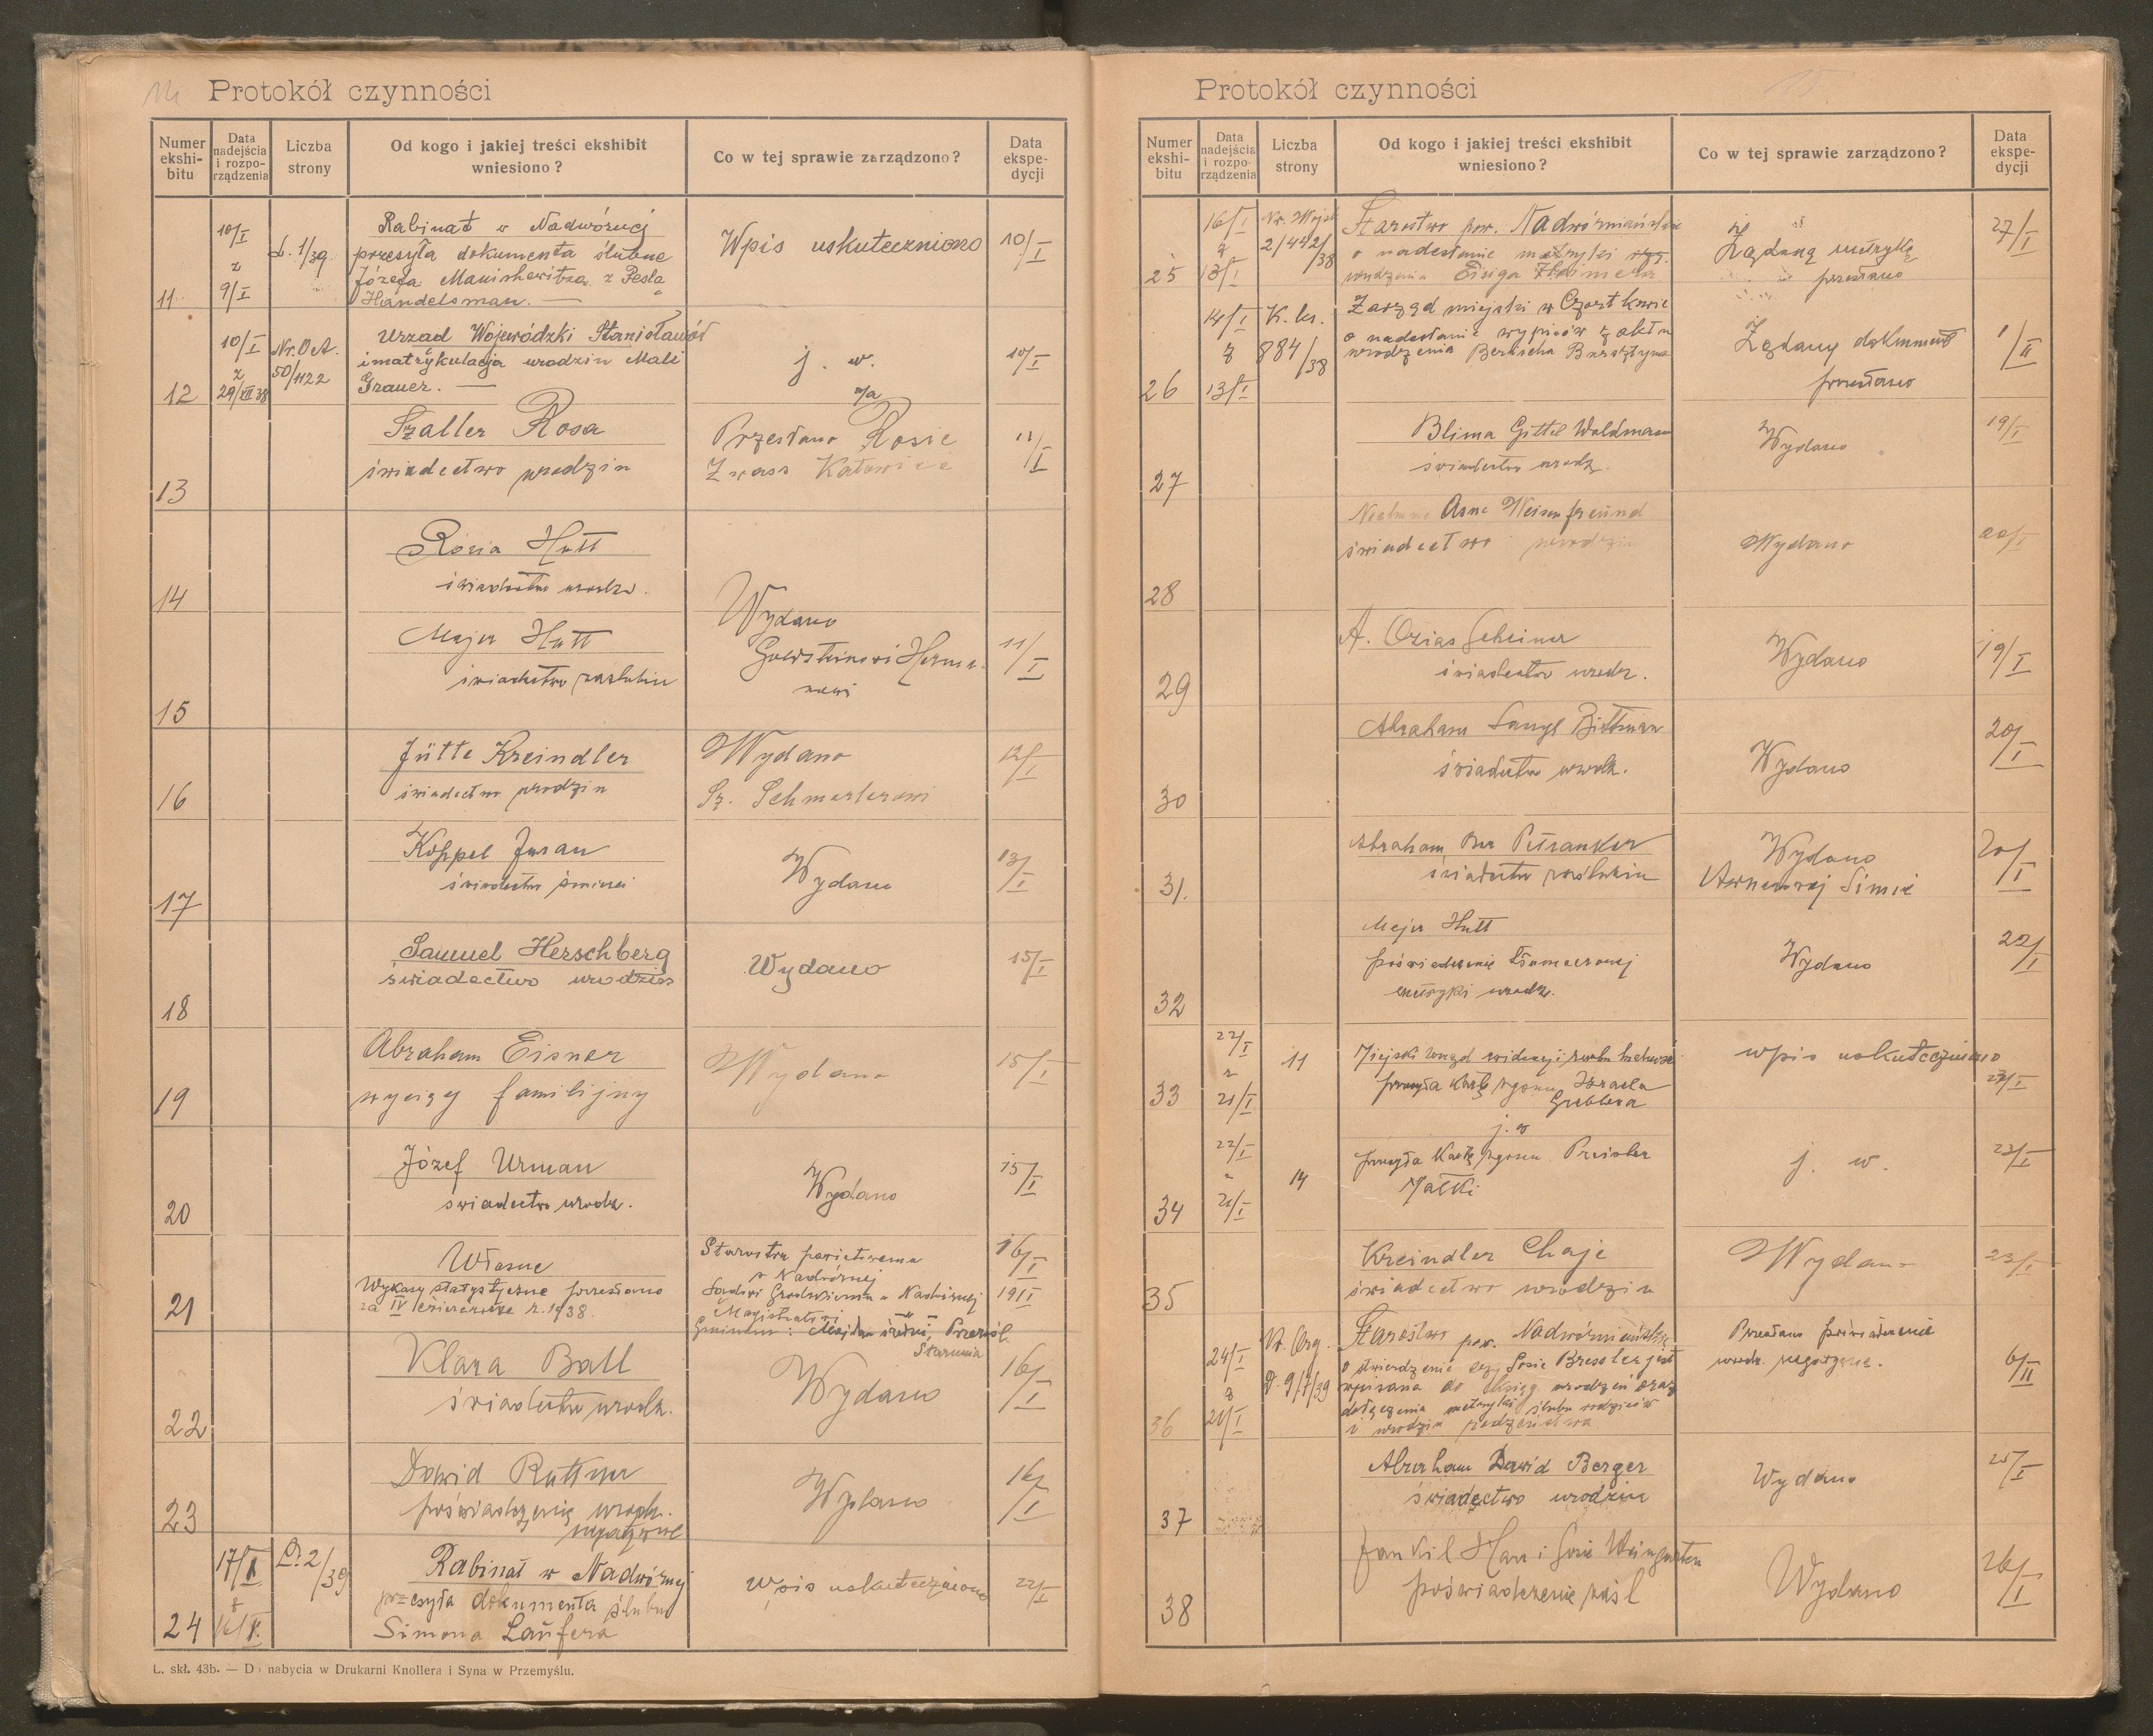 14 Protokół czynności
Numer ekshi-bitu
Data nadejścia i rozpo-rządzenia
Liczba strony
Od kogo i jakiej treści ekshibit wniesiono?
Co w tej sprawie zarządzono?
Data ekspe-dycji
10/I Rabinat w Nadwórnej
z L. 1/39. przesyła dokumenta ślubne Wpis uskuteczniono 10/I
9/I Józefa Manishewitza z Pesla
11 Handelsman. —
10/I Nr. OA. Urzad Wojewódzki Stanisławów
z 50/1122 imatrykulacja urodzin Mali j. w. 10/I
12 29/XII 38 Grauer. — a/a
Szaller Rosa Przesłano Rosie 11/I
świadectwo urodzin Zwass Katowice
13
Rózia Hutt
świadectwo urodz.
14
Wydano
Majer Hutt 11/I
świadectwo zaślubin nowi
15
Jütte Kreindler Wydano 12/I
16 świadectwo urodzin Sz. Schmerlerowi
Koppel Juran Wydano 13/I
świadectwo śmierci
17
Samuel Herschberg Wydano 15/I
świadectwo urodzin
18
Abraham Eisner Wydano 15/I
19 wyciąg familijny
Józef Urman Wydano 15/I
20 świadectwo urodz.
Własne Starostwu powiatowemu 16/I
w Nadwórnej
Wykazy statystyczne przesłano Sądowi Grodzkiemu w Nadwórnej 19/I
21 za IV ćwierćrocze r. 1938. Magistratowi
Gminom: Majdan średni, Przerośl
Starunia
Klara Ball Wydano 16/I
świadectwo urodz.
22
Dawid Ruttner Wydano 16/I
poświadczenie urodz.
23 negatywne
17/I L. 2/39 Rabinat w Nadwórnej
z przesyła dokumenta ślubu wpis uskuteczniono 22/I
24 16/I. Simona Laufera
L. skł. 43b. — Do nabycia w Drukarni Knollera i Syna w Przemyślu.
Protokół czynności 15
Numer ekshi-bitu
Data nadejścia i rozpo-rządzenia
Liczba strony
Od kogo i jakiej treści ekshibit wniesiono?
Co w tej sprawie zarządzono?
Data ekspe-dycji
16/I Nr. Wojsk Starostwo pow. Nadwórniańskie 27/I
z 2/442/38 o nadesłanie metryki Żądaną metrykę
25 13/I urodzenia Eisiga przesłano
14/I K. ks. Zarząd miejski w Czortkowie
z 884/38 o nadesłanie wypisów z aktu Żądany dokument 1/II
26 13/I urodzenia Berischa Bursztyna przesłano
Blima Gittel Waldmann Wydano 19/I
27 świadectwo urodz.
Asne Weisenfreund
świadectwo urodzin Wydano 20/I
28
A. Ozias Scheiner Wydano 19/I
29 świadectwo urodz.
Abraham Bittman 20/I
świadectwo urodz. Wydano
30
Abraham Ber Pitranker Wydano 20/I
31. świadectwo zaślubin Simie
Mejer Hutt
poświadczenie tłumaczonej Wydano 22/I
32 metryki urodz.
22/I 11 Miejski Urząd ewidencji ruchu ludności wpis uskuteczniono
z przesyła kartę zgonu Izraela 23/I
33 21/I Grublera
22/I j. w
z 14 przesyła kartę zgonu Preisler j. w. 23/I
34 21/I Małki
Kreindler Chaje Wydano 23/I
35 świadectwo urodzin
24/I Nr. Org. Starostwo pow. Nadwórniańskie Przesłano poświadczenie
z D. 9/7/39 o stwierdzenie czy Sosie Bressler jest urodz. negatywne. 6/II
wpisana do ksiąg urodzeń oraz
36 21/I dołączenia metryki ślubu rodziców
i urodzin rodzeństwa
Abraham Dawid Berger Wydano 25/I
37 świadectwo urodzin
Jankil Hari i Gosie Weingarten Wydano 26/I
38 poświadczenie zaśl